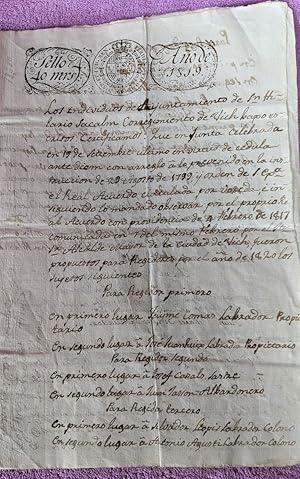 Sello 4º
40 mrs
Año de
1819
Los individuos de Ayuntamiento de Sn Hi-
lario Sacalm Corregimiento de Vich bajo es-
critos Certificamos: Que en Junta Celebrada
en 19 de Setiembre ultimo en virtud de cedula
ante diem con arreglo à lo prevenido en la ins-
truccion de de Agosto de 1799 y orden de 1
el Real Acuerdo circulada por è in-
siguiendo lo mandado observar por el propio Re-
al Acuerdo con providencia de 4 Febrero de 1817
comunicada en 7 del mismo Febrero por el Sr
Alcalde Mayor de la Ciudad de Vich, fueron
propuestos para Regidores por el año de 1820 los
sujetos siguientes
Para Regidor primero
En primero lugar Jayme Comas Labrador Propie-
tario
En segundo lugar à José Labrador Propietario
Para Regidor segundo
En primero lugar à Josef Casals Sastre
En segundo lugar à Juan Albardonero
Para Regidor tercero
En primero lugar à Salvador Labrador Colono
En segundo lugar à Antonio Agusti Labrador Colono